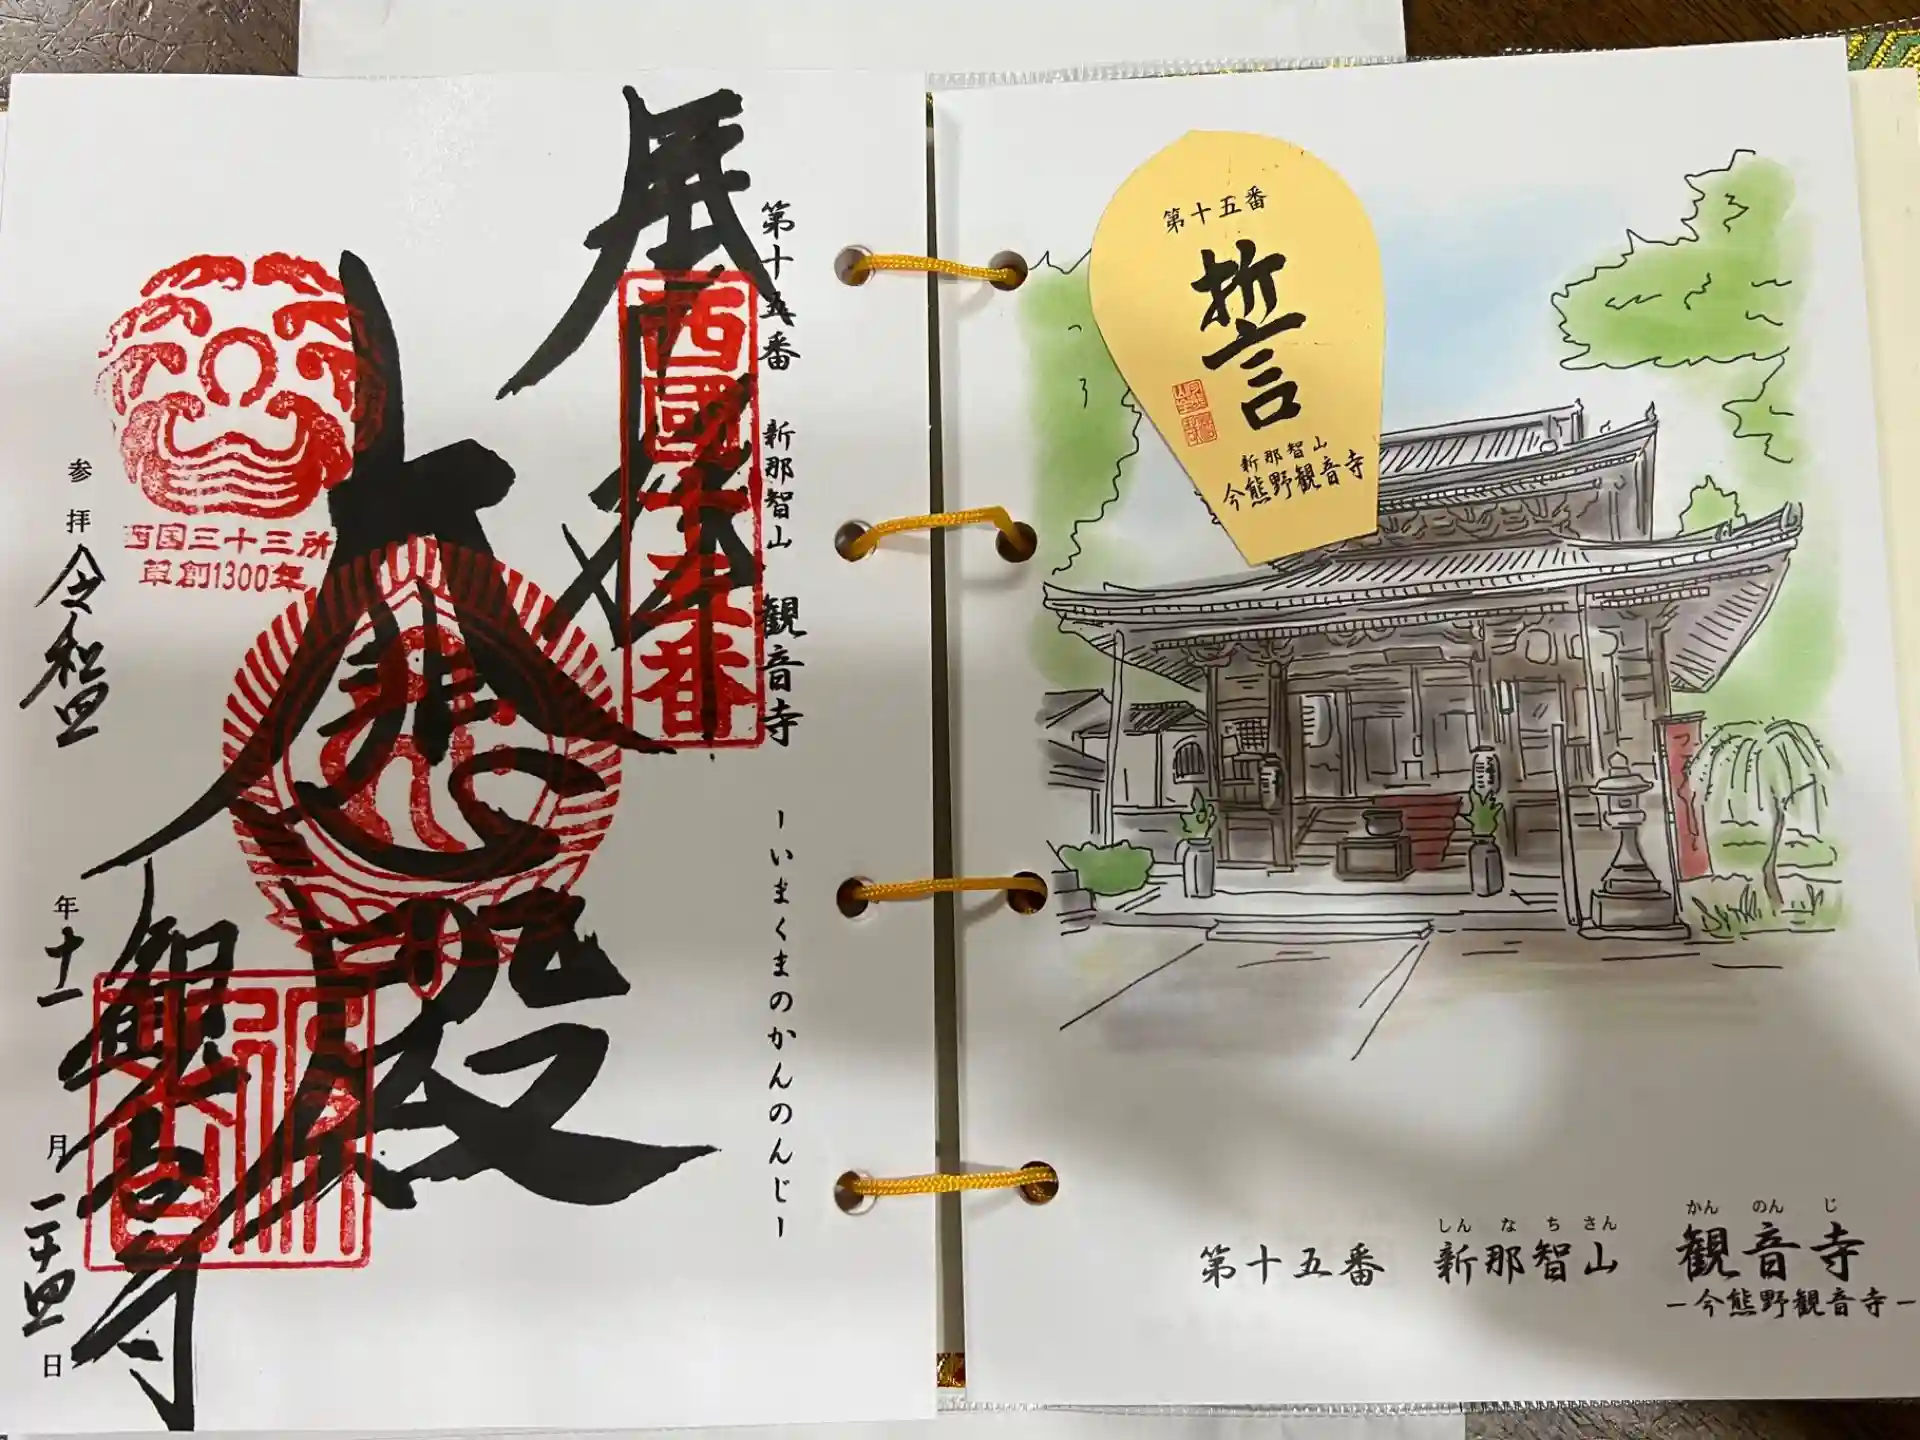 展拝
第十五番 新那智山 観音寺 ーいまくまのかんのんじー
西國十五番
大悲殿
西国三十三所
草創1300年
観音寺
参拝 令和四年十一月二十四日
第十五番
誓
新那智山
今熊野観音寺
第十五番 新那智山 観音寺
しんなちさん かんのんじ
ー今熊野観音寺ー